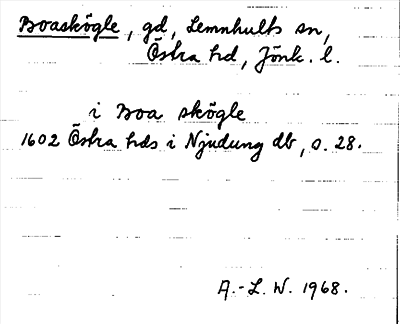 Boaskögle, gd, Lemnhults sn,
Östra hd, Jönk. l.
i Boa skögle
1602 Östra hds i Njudung db, s. 28.
A.-L. W. 1968.